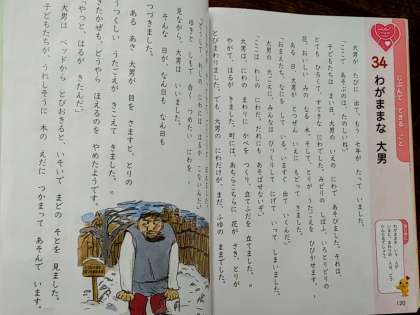 じぶんで できる こと
34 わがままな 大男
大男が たびに 出て、もう 七年が たって いました。
「ここで あそぶのは、たのしいね。」
子どもたちは、まい日、大男の いえの にわで あそびました。それは、
とても ひろくて、すてきな にわでした。みどりの しばふ、いろとりどりの
花、おいしい みの なる 木、そして、ことりが うたごえを ひびかせます。
ある 日、大男が ひょっこり いえに もどって きました。
「おまえたち、なにを して いる。いますぐ 出て いくんだ。」
大男の 大ごえに、みんなは びっくりして にげて いって しまいました。
「ここは わしの にわだ。だれにも あそばせないぞ。」
大男は、にわの まわりに かべを つくり、立てふだを 立てました。
やがて、はるが きました。町には、あちらこちらに 花が さき、とりが
とびまわりました。でも、大男の にわだけが、まだ、ふゆの ままでした。
120
「どうして、わしの にわには はるが こないんだ。」
ゆきと しもで 白く つめたい にわを
見ながら、大男は いいました。
そんな 日が、なん日も なん日も
つづきました。
ある あさ、大男が 目を さますと、とりの
うつくしい うたごえが きこえて きました。
きたかぜも どうやら ほえるのを やめたようです。
「やっと、はるが きたんだ。」
大男は ベッドから とびおきると、いそいで まどの そとを 見ました。
子どもたちが、うれしそうに 木の えだに つかまって あそんで います。